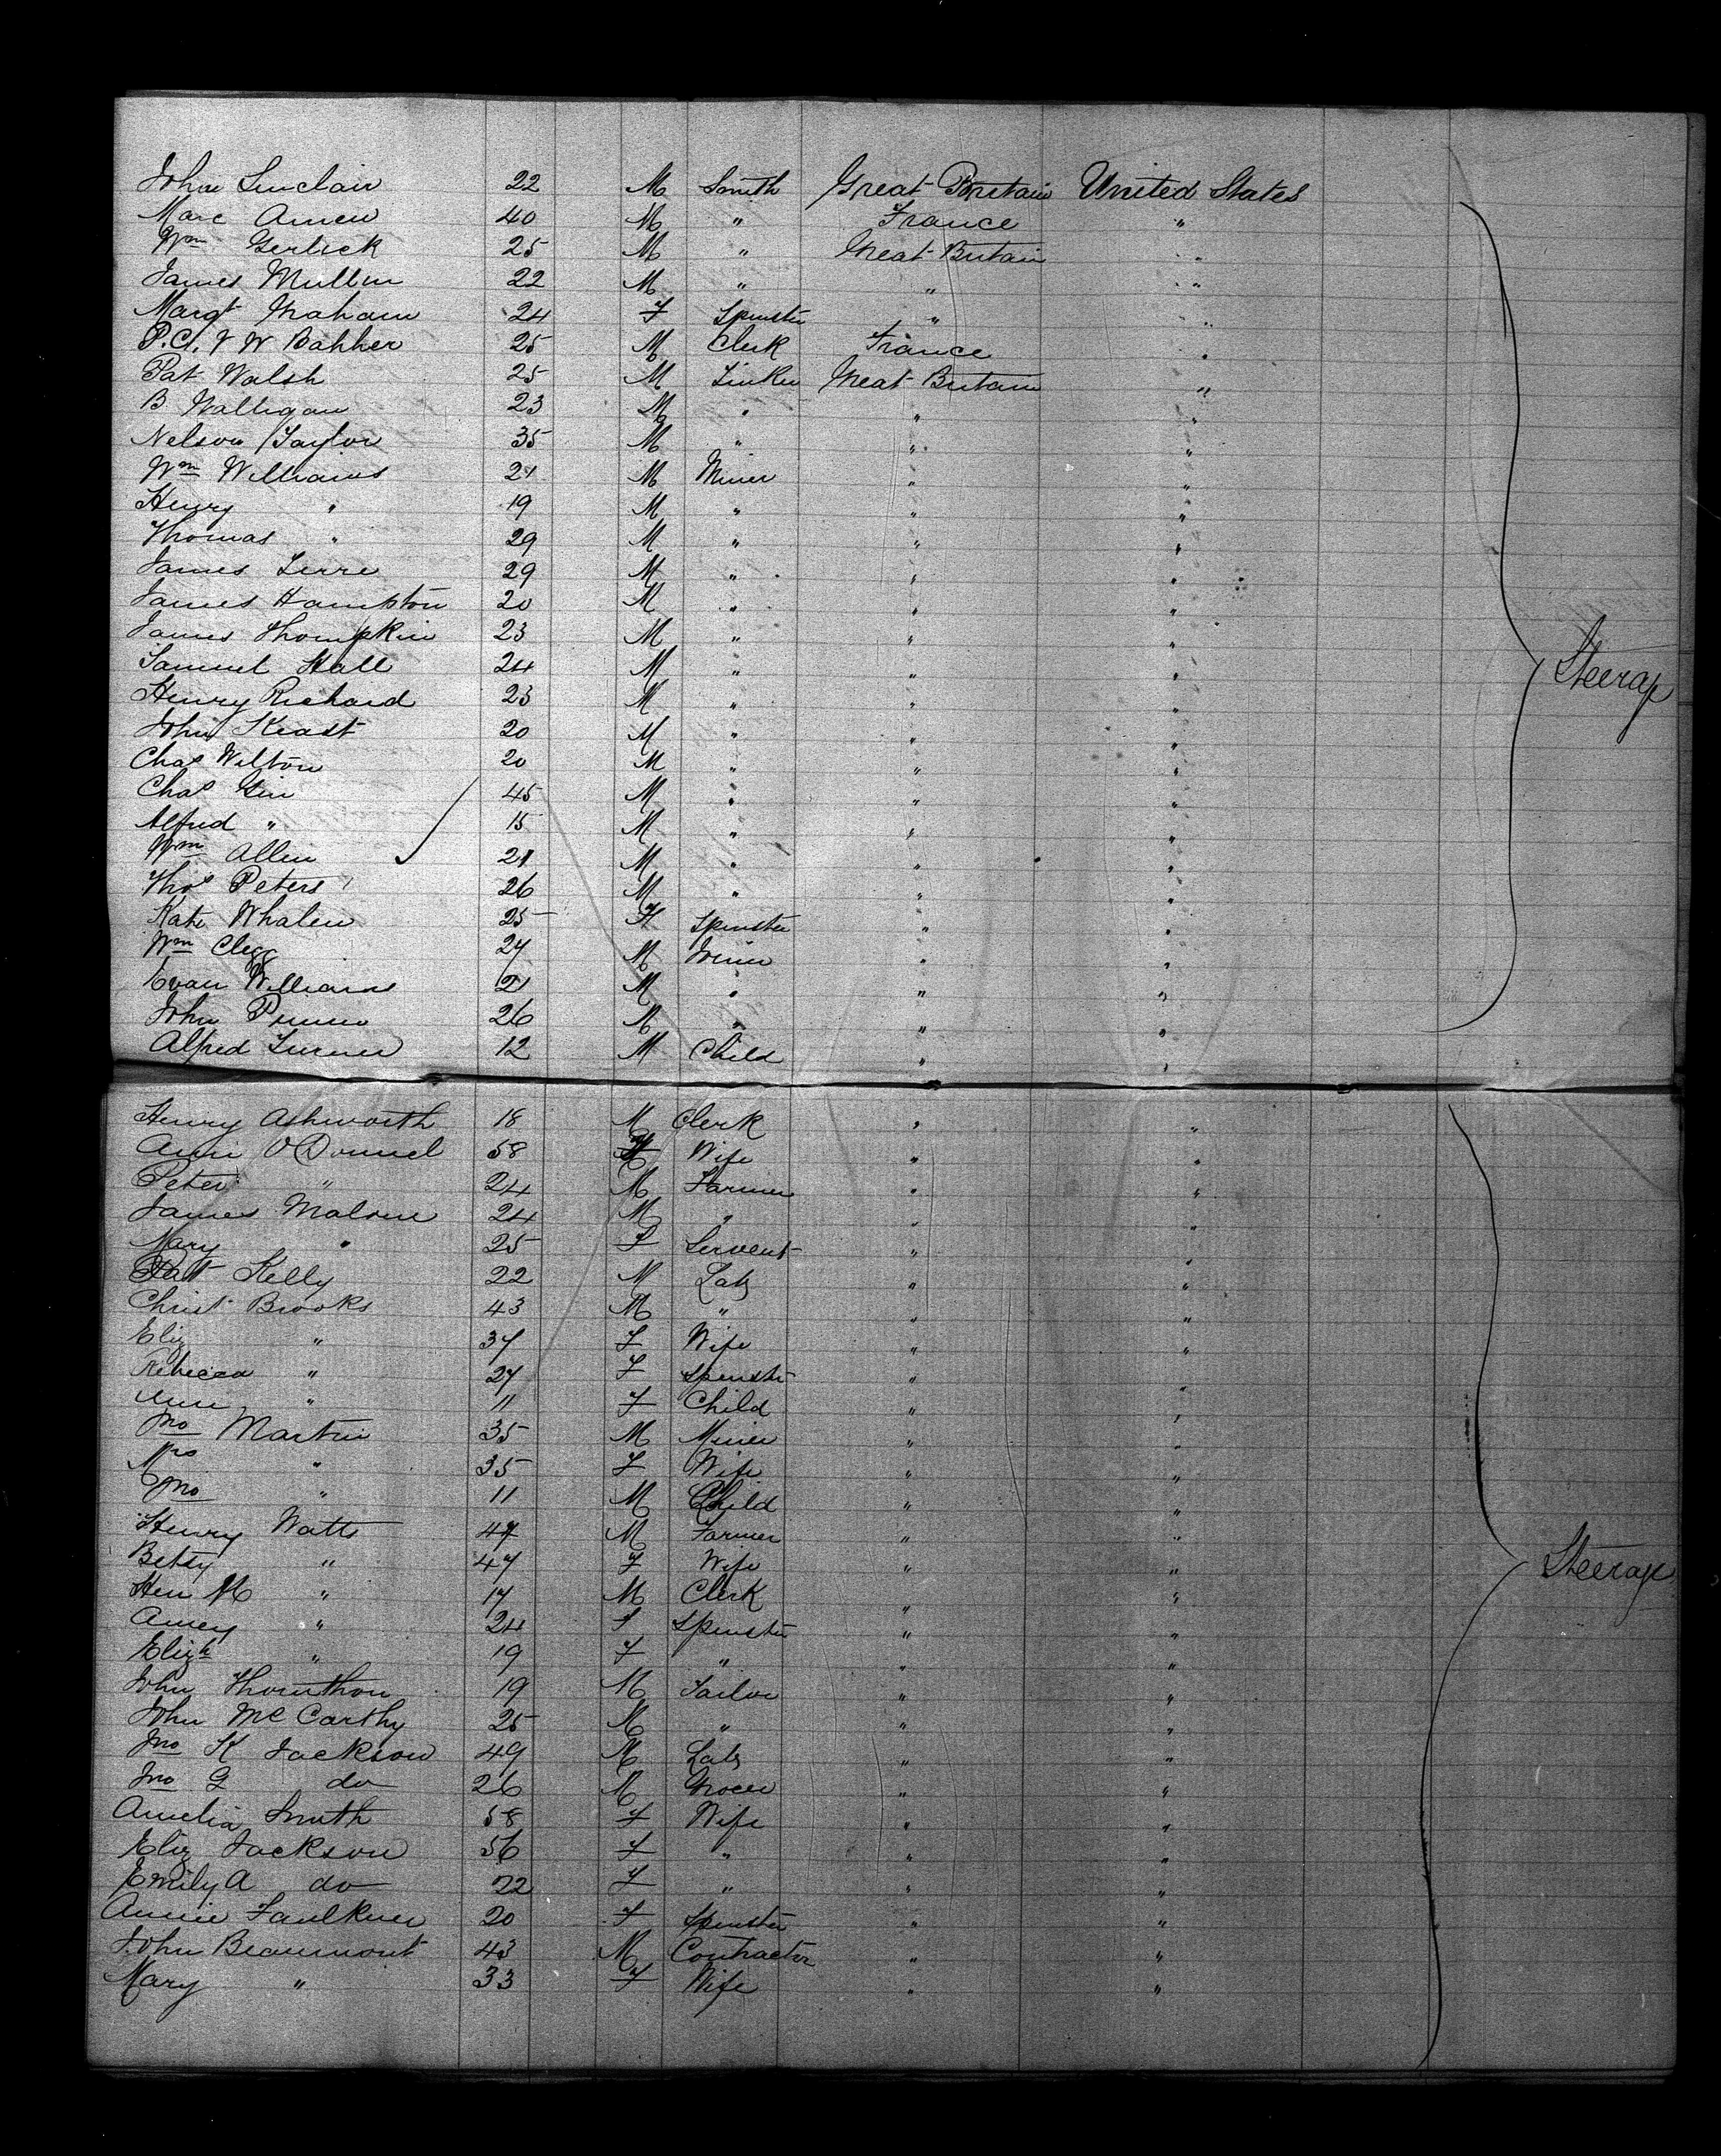 John Sinclair 22 M Smith Great Britain United States
Marc Amen 40 M " France "
Wm Gerlick 25 M " Great Britain "
James Mullin 22 M " " "
Margt Graham 24 F Spinster " "
P.C. V W Bakker 25 M Clerk France "
Pat Walsh 25 M Tinker Great Britain "
B Halligan 23 M " " "
Nelson Taylor 35 M " " "
Wm Williams 21 M Miner " "
Henry " 19 M " " "
Thomas " 29 M " " "
James Terre 29 M " " "
James Hampton 20 M " " "
James Thompkin 23 M " " "
Samuel Hall 24 M " " "
Henry Richard 23 M " " "
John Keast 20 M " " "
Chas Wilton 20 M " " "
Chas Gin 45 M " " "
Alfred " 15 M " " "
Wm Allen 21 M " " "
Thos Peters 26 M " " "
Kate Whalen 25 F Spinster " "
Wm Clegg 27 M " "
Evan Williams 21 M " " "
John 26 M " " "
Alfred Turner 12 M Child " "
Steerage
Henry Ashworth 18 M Clerk " "
Ann O'Donnel 58 F Wife " "
Peter " 24 M Farmer " "
James Malone 24 M " " "
Mary " 25 F Servent " "
Patt Kelly 22 M Labr " "
Christ Brooks 43 M " " "
Eliz " 37 F Wife " "
Rebecca " 27 F Spinster " "
Ann " 11 F Child " "
Jno Martin 35 M Miner " "
Mrs " 35 F Wife " "
Jno " 11 M Child " "
Henry Watts 47 M Farmer " "
Betsy " 47 F Wife " "
Hen M " 17 M Clerk " "
Amey " 24 F Spinster " "
Elizh " 19 F " " "
John Thornthon 19 M Tailor " "
John McCarthy 25 M " " "
Jno K Jackson 49 M Labr " "
Jno G do 26 M Grocer " "
Amelia Smith 58 F Wife " "
Eliz Jackson 56 F " " "
Emily A do 22 F " " "
Annie Faulkner 20 F Spinster " "
John Beaumont 43 M Contractor " "
Mary " 33 F Wife " "
Steerage